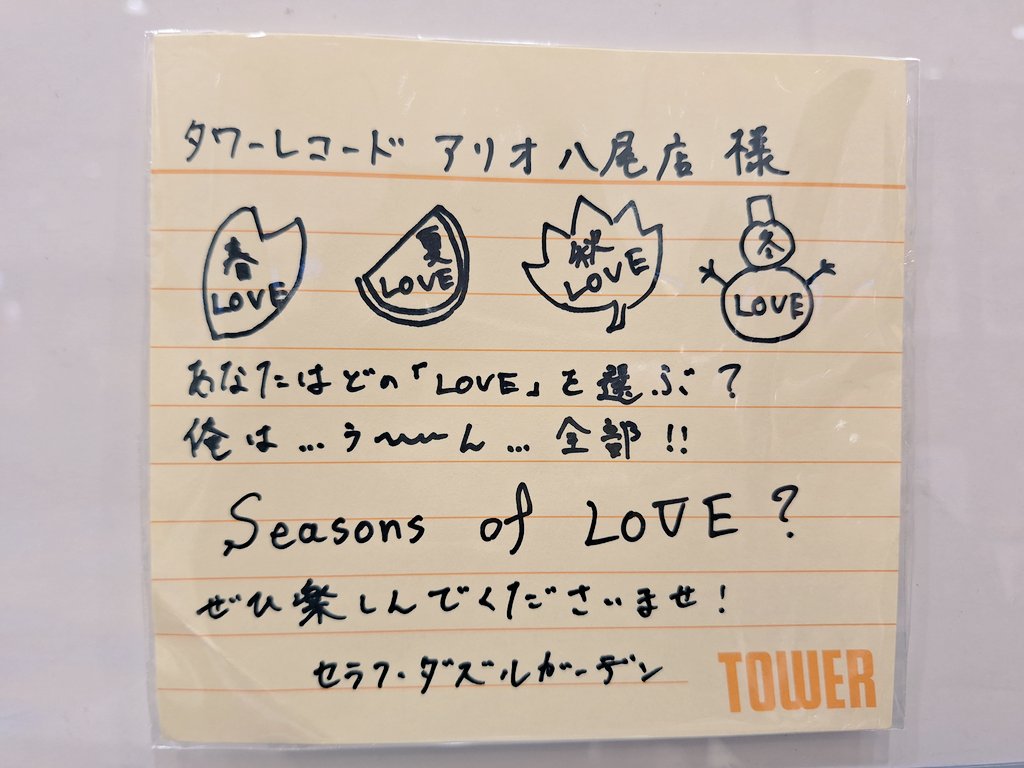 タワーレコード アリオ八尾店 様
春 LOVE
夏 LOVE
秋 LOVE
冬 LOVE
あなたはどの「LOVE」を選ぶ？
俺は…う〜〜ん…全部!!
Seasons of LOVE?
ぜひ楽しんでくださいませ！
セラフ・ダズルガーデン
TOWER